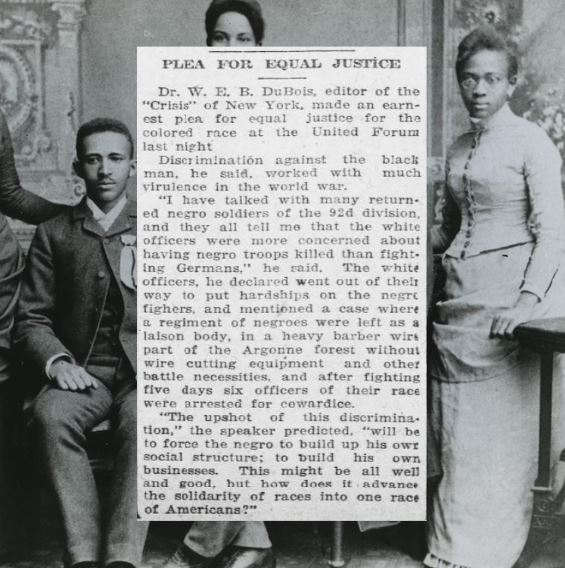 PLEA FOR EQUAL JUSTICE
Dr. W. E. B. DuBois, editor of the
"Crisis" of New York, made an earn-
est plea for equal justice for the
colored race at the United Forum
last night
Discrimination against the black
man, he said, worked with much
virulence in the world war.
"I have talked with many return-
ed negro soldiers of the 92d division,
and they all tell me that the white
officers were more concerned about
having negro troops killed than fight-
ing Germans," he said. The white
officers, he declared went out of their
way to put hardships on the negro
fighers, and mentioned a case where
a regiment of negroes were left as a
laison body, in a heavy barber wire
part of the Argonne forest without
wire cutting equipment and other
battle necessities, and after fighting
five days six officers of their race
were arrested for cowardice.
"The upshot of this discrimina-
tion," the speaker predicted, "will be
to force the negro to build up his own
social structure; to build his own
businesses. This might be all well
and good, but how does it advance
the solidarity of races into one race
of Americans?"